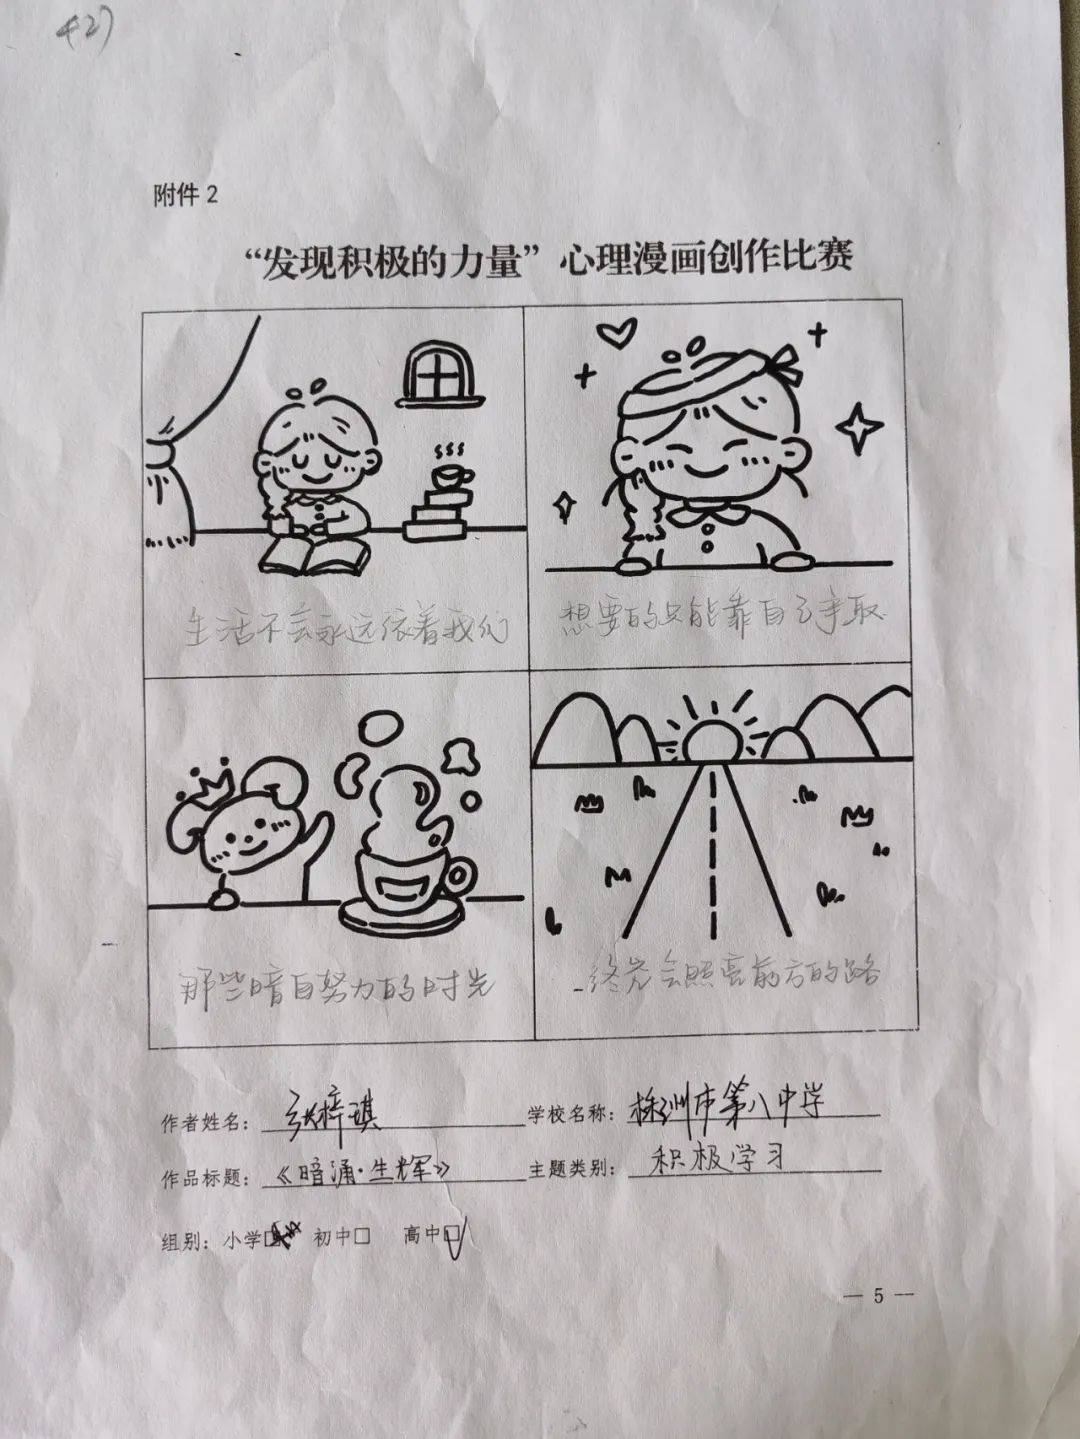 427
附件 2
“发现积极的力量”心理漫画创作比赛
生活不会永远依着我们
想要的只能靠自己争取
那些暗自努力的时光
终究会照亮前方的路
作者姓名: 张梓琪 学校名称: 株洲市第八中学
作品标题: 《暗涌·生辉》 主题类别: 积极学习
组别: 小学□ 初中□ 高中□
— 5 —